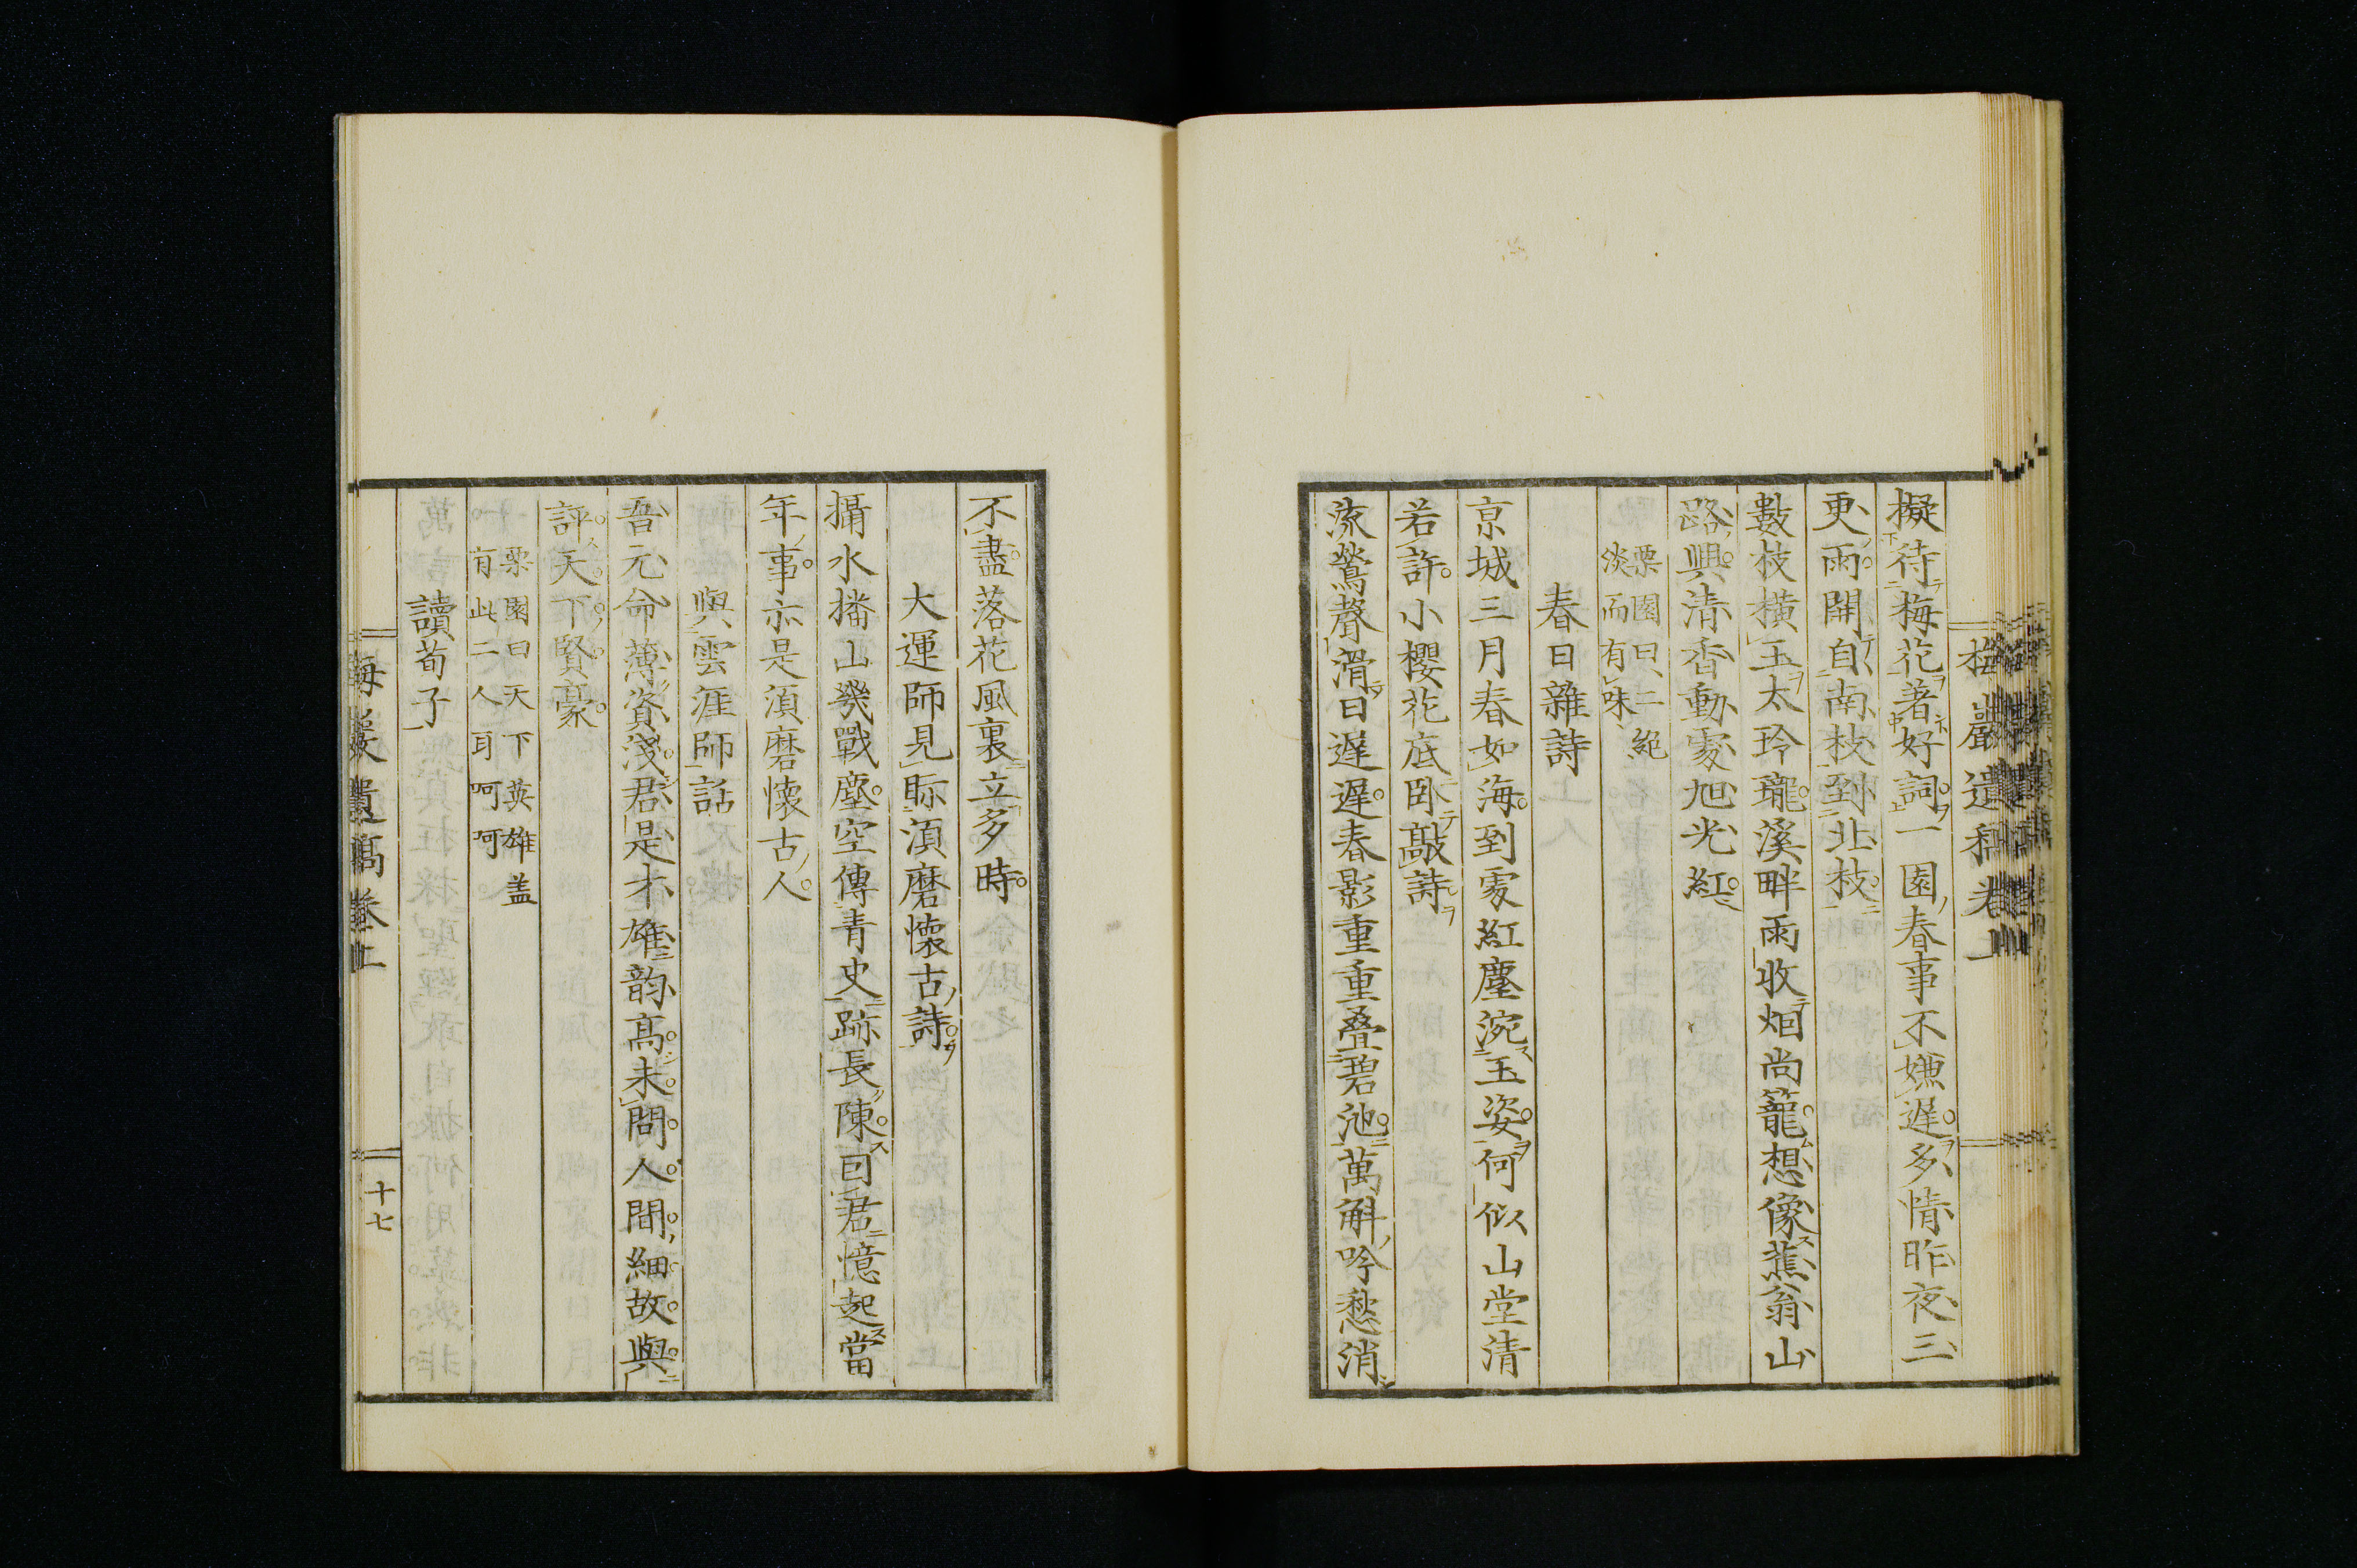 梅巖遺稿卷上
擬待梅花著好詞一園春事不嫌遲多情昨夜三
更雨開自南枝到北枝
數枝橫玉太玲瓏溪畔雨收烟尚籠想像蕉翁山
路興清香動處旭光紅
栗園曰二絕
淡而有味
春日雜詩
京城三月春如海到處紅塵涴玉姿何似山堂清
若許小櫻花底臥敲詩
流鶯聲滑日遲遲春影重重疊碧池萬斛吟愁消
不盡落花風裏立多時
大運師見眎須磨懷古詩
攝水播山幾戰塵空傳青史跡長陳因君憶起當
年事亦是須磨懷古人
與雲涯師話
吾元命薄資淺君是才雄韵高未問人間細故與
評天下賢豪
栗園曰天下英雄盖
有此二人耳呵呵
讀荀子
梅巖遺稿卷上
十七